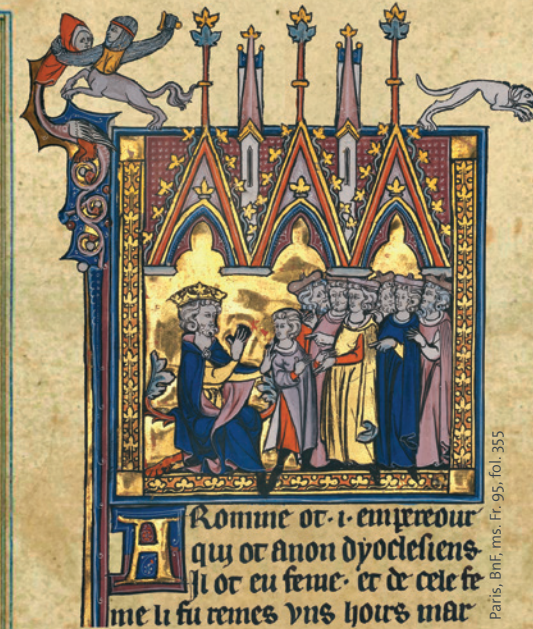 A Romme ot · i · empereour
qui ot a non dyoclesiens
Il ot eu feme · et de cele fe
me li fu remes vns hoirs mar
Paris, BnF, ms. Fr. 95, fol. 355